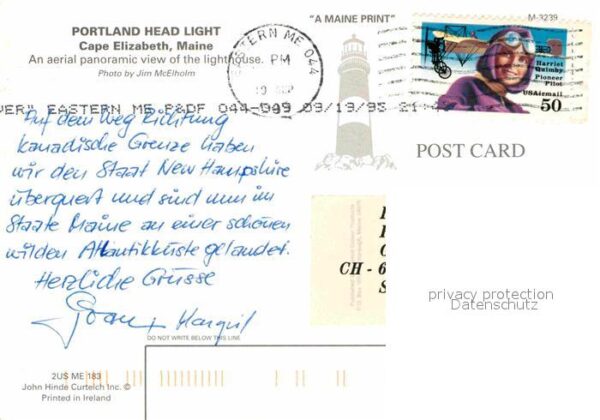 PORTLAND HEAD LIGHT
Cape Elizabeth, Maine
An aerial panoramic view of the lighthouse.
Photo by Jim McElholm
"A MAINE PRINT"
M-3239
EASTERN ME 044
PM
19 SEP
Harriet
Quimby
Pioneer
Pilot
USAirmail
50
EASTERN ME P&DF 044-049 09/19/95
POST CARD
Auf dem Weg Richtung
kanadische Grenze haben
wir den Staat New Hampshire
überquert und sind nun im
Staate Maine an einer schönen
wilden Atlantikküste gelandet.
Herzliche Grüsse
+ Margrit
CH - 6
privacy protection
Datenschutz
DO NOT WRITE BELOW THIS LINE
2US ME 183
John Hinde Curteich Inc. ©
Printed in Ireland